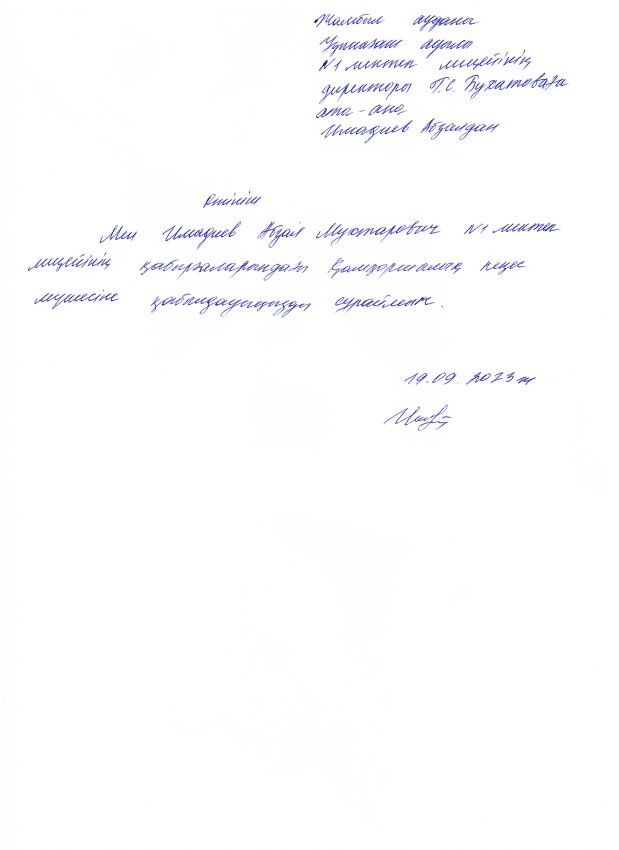 Жамбыл ауданы
Ұзынағаш ауылы
N1 мектеп лицейінің
директоры Г.С. Бухатоваға
ата-ана
Имадиев Абзалдан
Өтініш
Мен Имадиев Абзал Мухтарович N1 мектеп
лицейінің қабырғаларындағы Қамқоршылық кеңес
мүшесіне қабылдауыңызды сұраймын.
19.09.2023ж